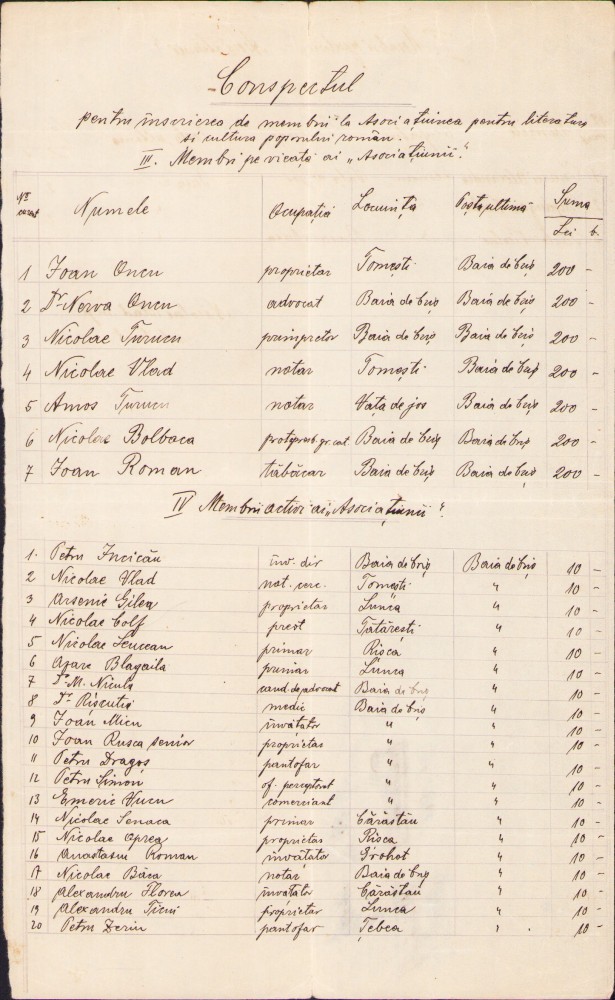 Conspectul
pentru înscrierea de membrii la Asociațiunea pentru literatura
si cultura poporului român.
III. Membri pe vieață ai „Asociațiunii".
Nr. curent Numele Ocupația Locuința Poșta ultimă Suma
Lei b.
1 Ioan Oncu proprietar Tomești Baia de Criș 200 -
2 Dr Nerva Oncu advocat Baia de Criș Baia de Criș 200 -
3 Nicolae Turucu primpretor Baia de Criș Baia de Criș 200 -
4 Nicolae Vlad notar Tomești Baia de Criș 200 -
5 Amos Turucu notar Vața de jos Baia de Criș 200 -
6 Nicolae Bolboca protopresb. gr. cat. Baia de Criș Baia de Criș 200 -
7 Ioan Roman tăbăcar Baia de Criș Baia de Criș 200 -
IV Membrii activi ai „Asociațiunii".
1. Petru Incicău înv. dir Baia de Criș Baia de Criș 10 -
2 Nicolae Vlad not. cerc. Tomești " 10 -
3 Arsenie Gilea proprietar Lunca " 10 -
4 Nicolae Golf preot Tătărești " 10 -
5 Nicolae primar Risca " 10 -
6 Blagaila primar Lunca " 10 -
7 Dr. M. Nicula cand. de advocat Baia de Criș " 10 -
8 Dr Rișcuția medic Baia de Criș " 10 -
9 Ioan Micu învățător " " 10 -
10 Ioan Rusca senior proprietar " " 10 -
11 Petru Dragoș pantofar " " 10 -
12 Petru Simon of. perceptent " " 10 -
13 Emeric comerciant " " 10 -
14 Nicolae Senaca primar Cărăstău " 10 -
15 Nicolae Oprea proprietar Risca " 10 -
16 Anastasiu Roman învățător Grohot " 10 -
17 Nicolae Băca notar Baia de Criș " 10 -
18 Alexandru Florea învatător Cărăstău " 10 -
19 Alexandru proprietar Lunca " 10 -
20 Petru pantofar Țebea " 10 -